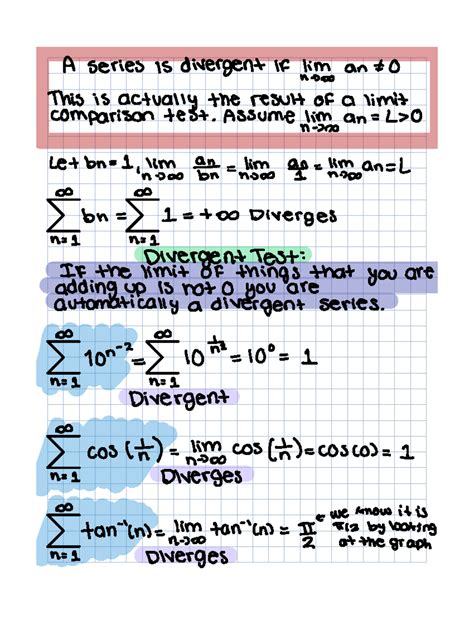 A series is divergent if lim n→∞ an ≠ 0
This is actually the result of a limit
comparison test. Assume lim n→∞ an = L>0
Let bn=1, lim n→∞ an/bn = lim n→∞ an/1 = lim n→∞ an=L
∞ ∑ n=1 bn = ∞ ∑ n=1 1 = +∞ Diverges
Divergent Test:
If the limit of things that you are
adding up is not 0 you are
automatically a divergent series.
∞ ∑ n=1 10^n^-2 = ∞ ∑ n=1 10^1/n^2 = 10^0 = 1
Divergent
∞ ∑ n=1 cos (1/n) = lim n→∞ cos (1/n) = cos(0) = 1
Diverges
∞ ∑ n=1 tan^-1(n) = lim n→∞ tan^-1(n) = π/2 ← we know it is
π/2 by looking
at the graph
Diverges